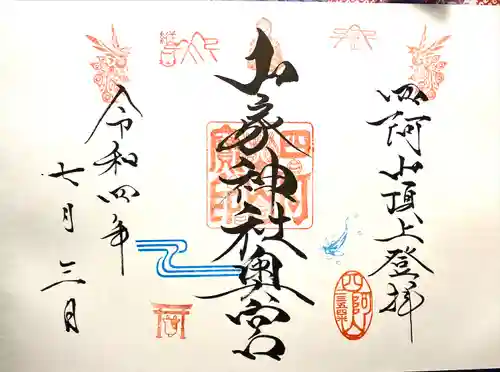 四阿山頂上登拝
山家神社奥宮
令和四年
七月三日
四阿山